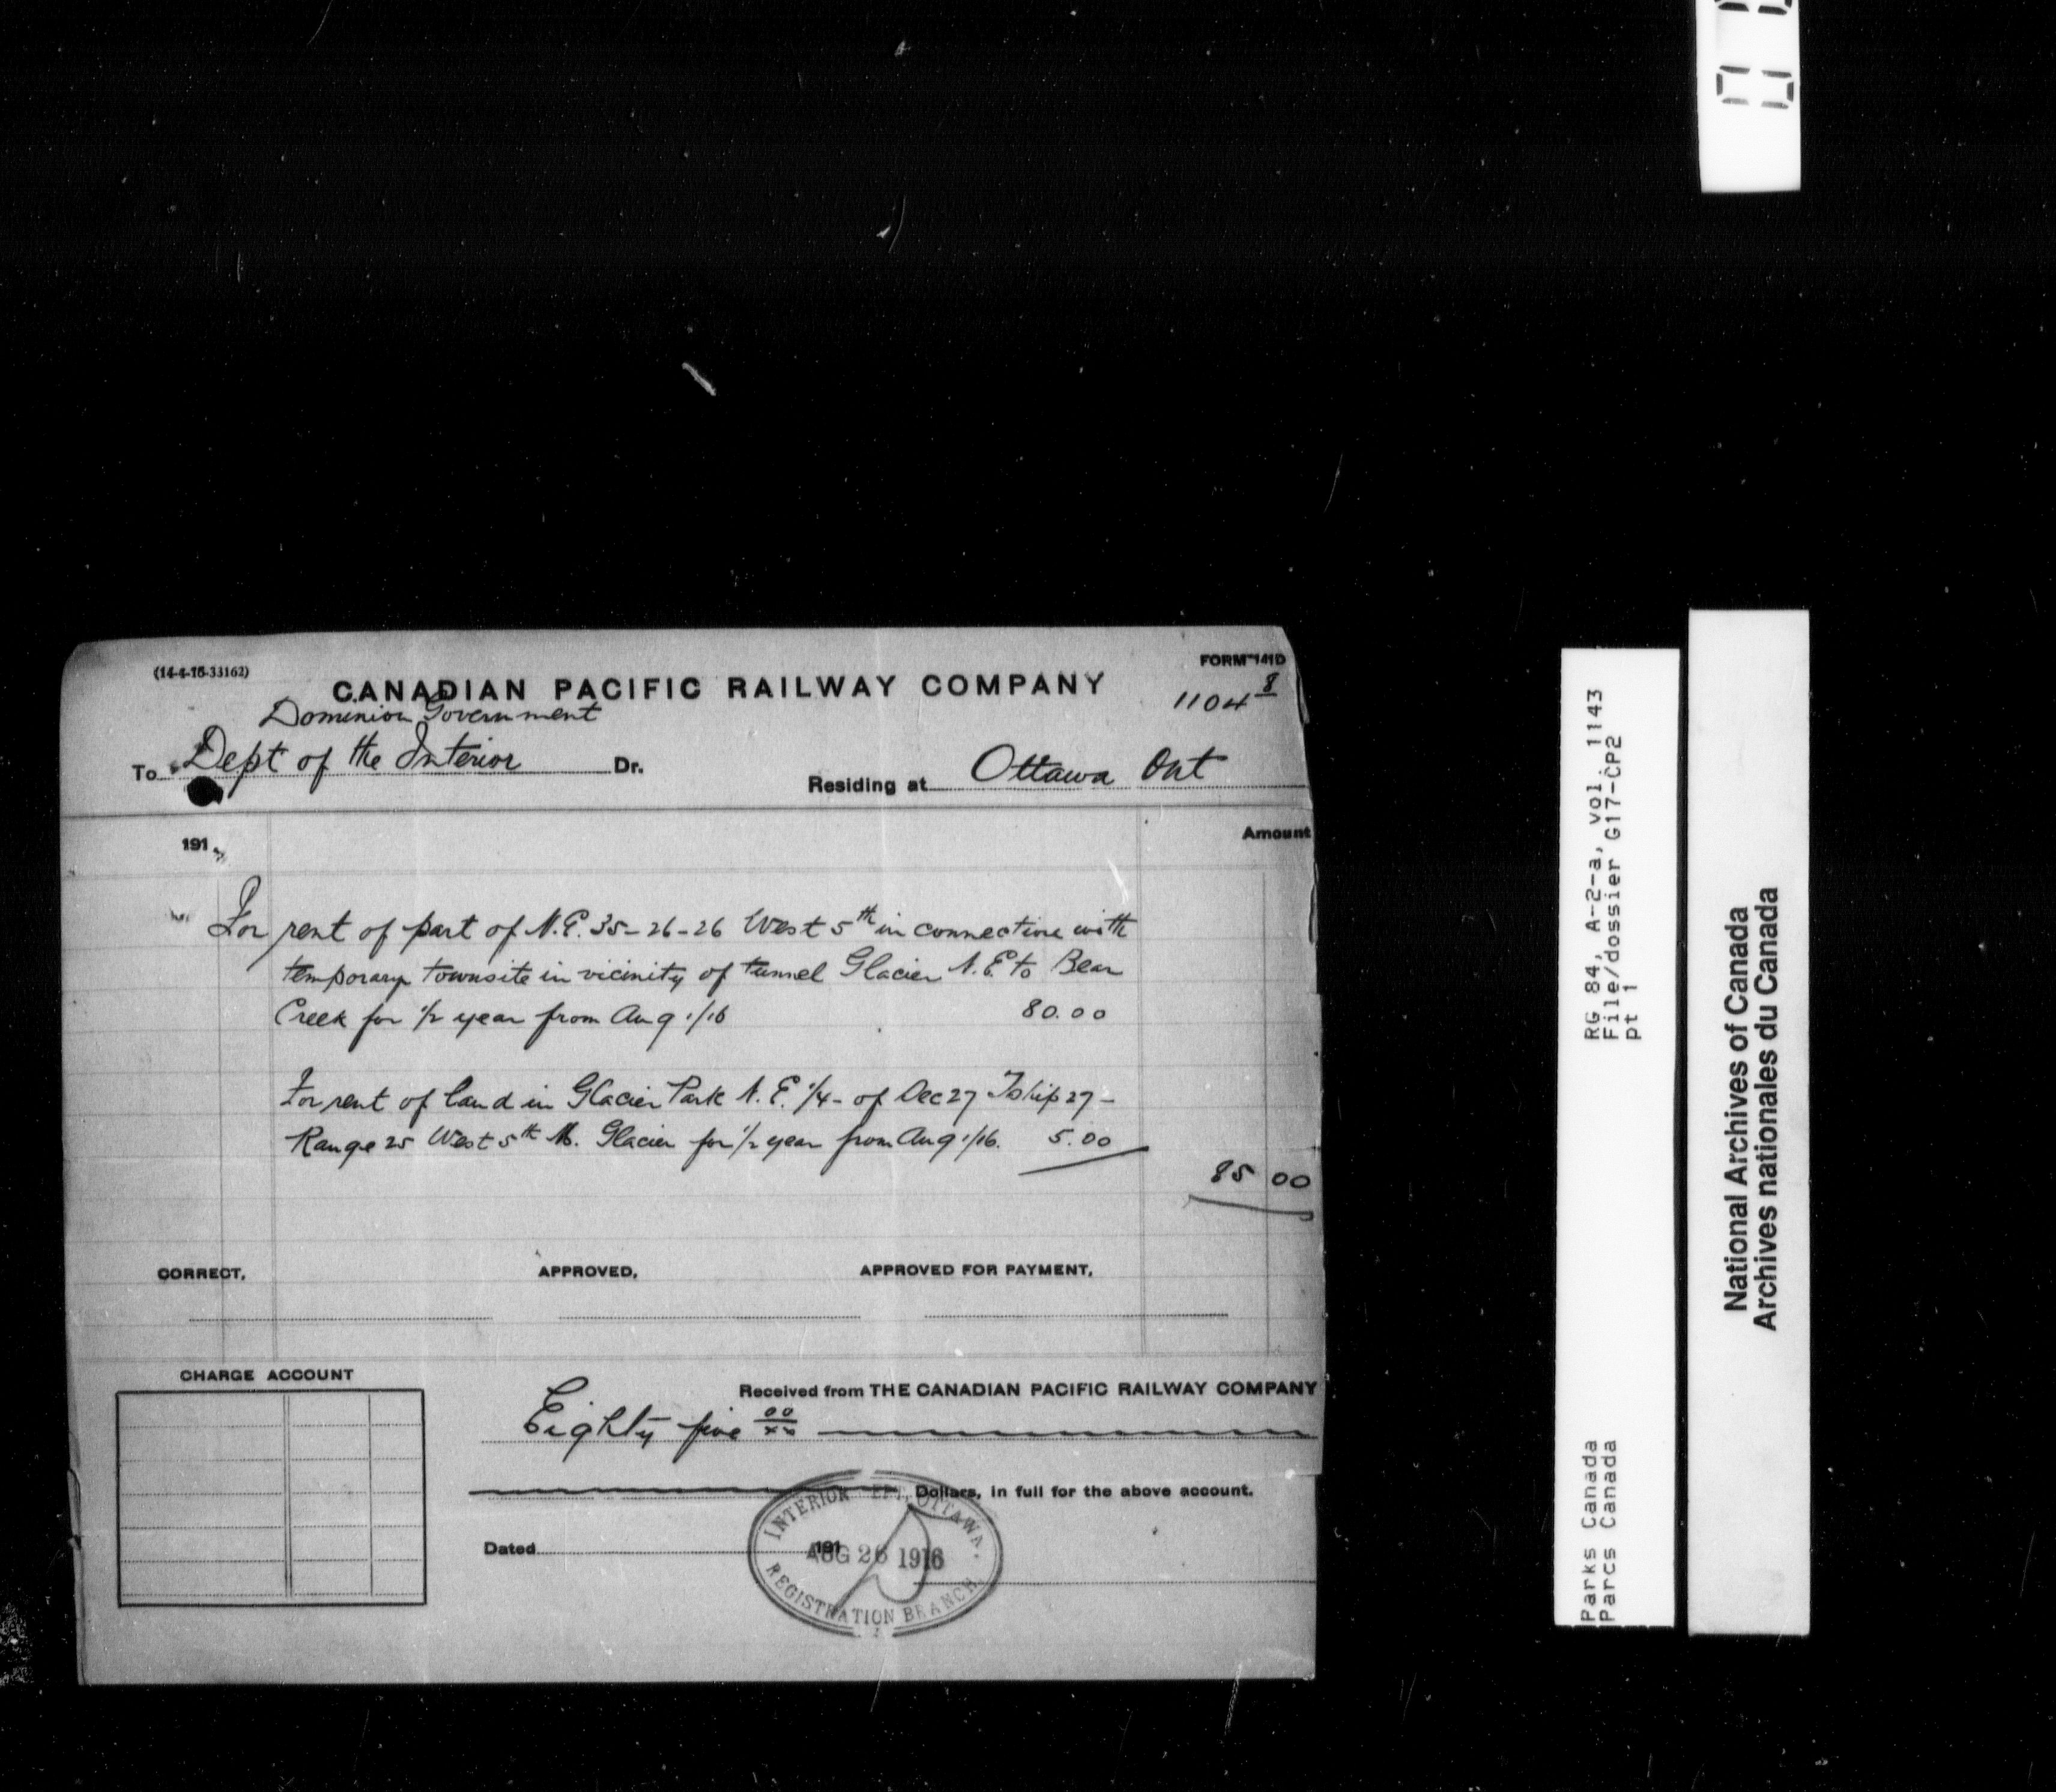 (14-4-15-33162)
FORM 141D
CANADIAN PACIFIC RAILWAY COMPANY
1104 8
Dominion Government
To Dept of the Interior Dr.
Residing at Ottawa Ont
191
Amount
For rent of part of N.E. 35-26-26 West 5th in connection with
temporary townsite in vicinity of tunnel Glacier N.E. to Bear
Creek for 1/2 year from Aug 1/16 80.00
For rent of land in Glacier Park N.E. 1/4 - of Sec 27 Tship 27 -
Range 25 West 5th M. Glacier for 1/2 year from Aug 1/16. 5.00
85 00
CORRECT, APPROVED, APPROVED FOR PAYMENT,
CHARGE ACCOUNT
Received from THE CANADIAN PACIFIC RAILWAY COMPANY
Eighty five 00/xx
Dollars, in full for the above account.
Dated 191
INTERIOR OTTAWA.
AUG 26 1916
REGISTRATION BRANCH
RG 84, A-2-a, vol. 1143
File/dossier G17-CP2
pt 1
Parks Canada
Parcs Canada
National Archives of Canada
Archives nationales du Canada